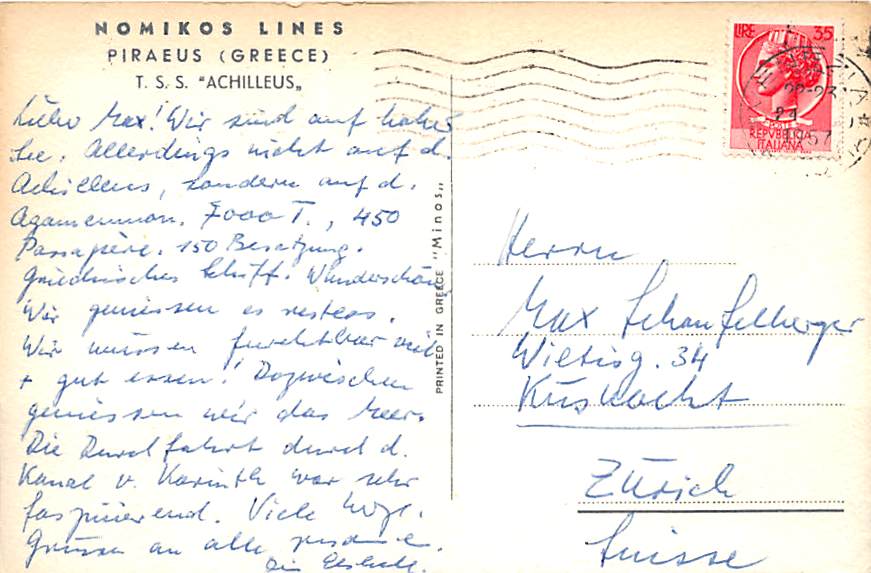 NOMIKOS LINES
PIRAEUS (GREECE)
T. S. S. "ACHILLEUS„
Lieber Max! Wir sind auf hoher
See. Allerdings nicht auf d.
Achilleus, sondern auf d.
Agamemnon. 7000 T., 450
Passagiere. 150 Besatzung.
Griechisches Schiff. Wunderschön
Wir geniessen es restlos.
Wir müssen furchtbar viel
+ gut essen! Dazwischen
geniessen wir das Meer.
Die Durchfahrt durch d.
Kanal v. Korinth war sehr
faszinierend. Viele herzl.
Grüsse an alle
PRINTED IN GREECE "Minos„
LIRE 35
22-23
1957
POSTE
REPVBBLICA
ITALIANA
Herrn
Max Schaufelberger
Wiltisg. 34
Küsnacht
Zürich
Suisse